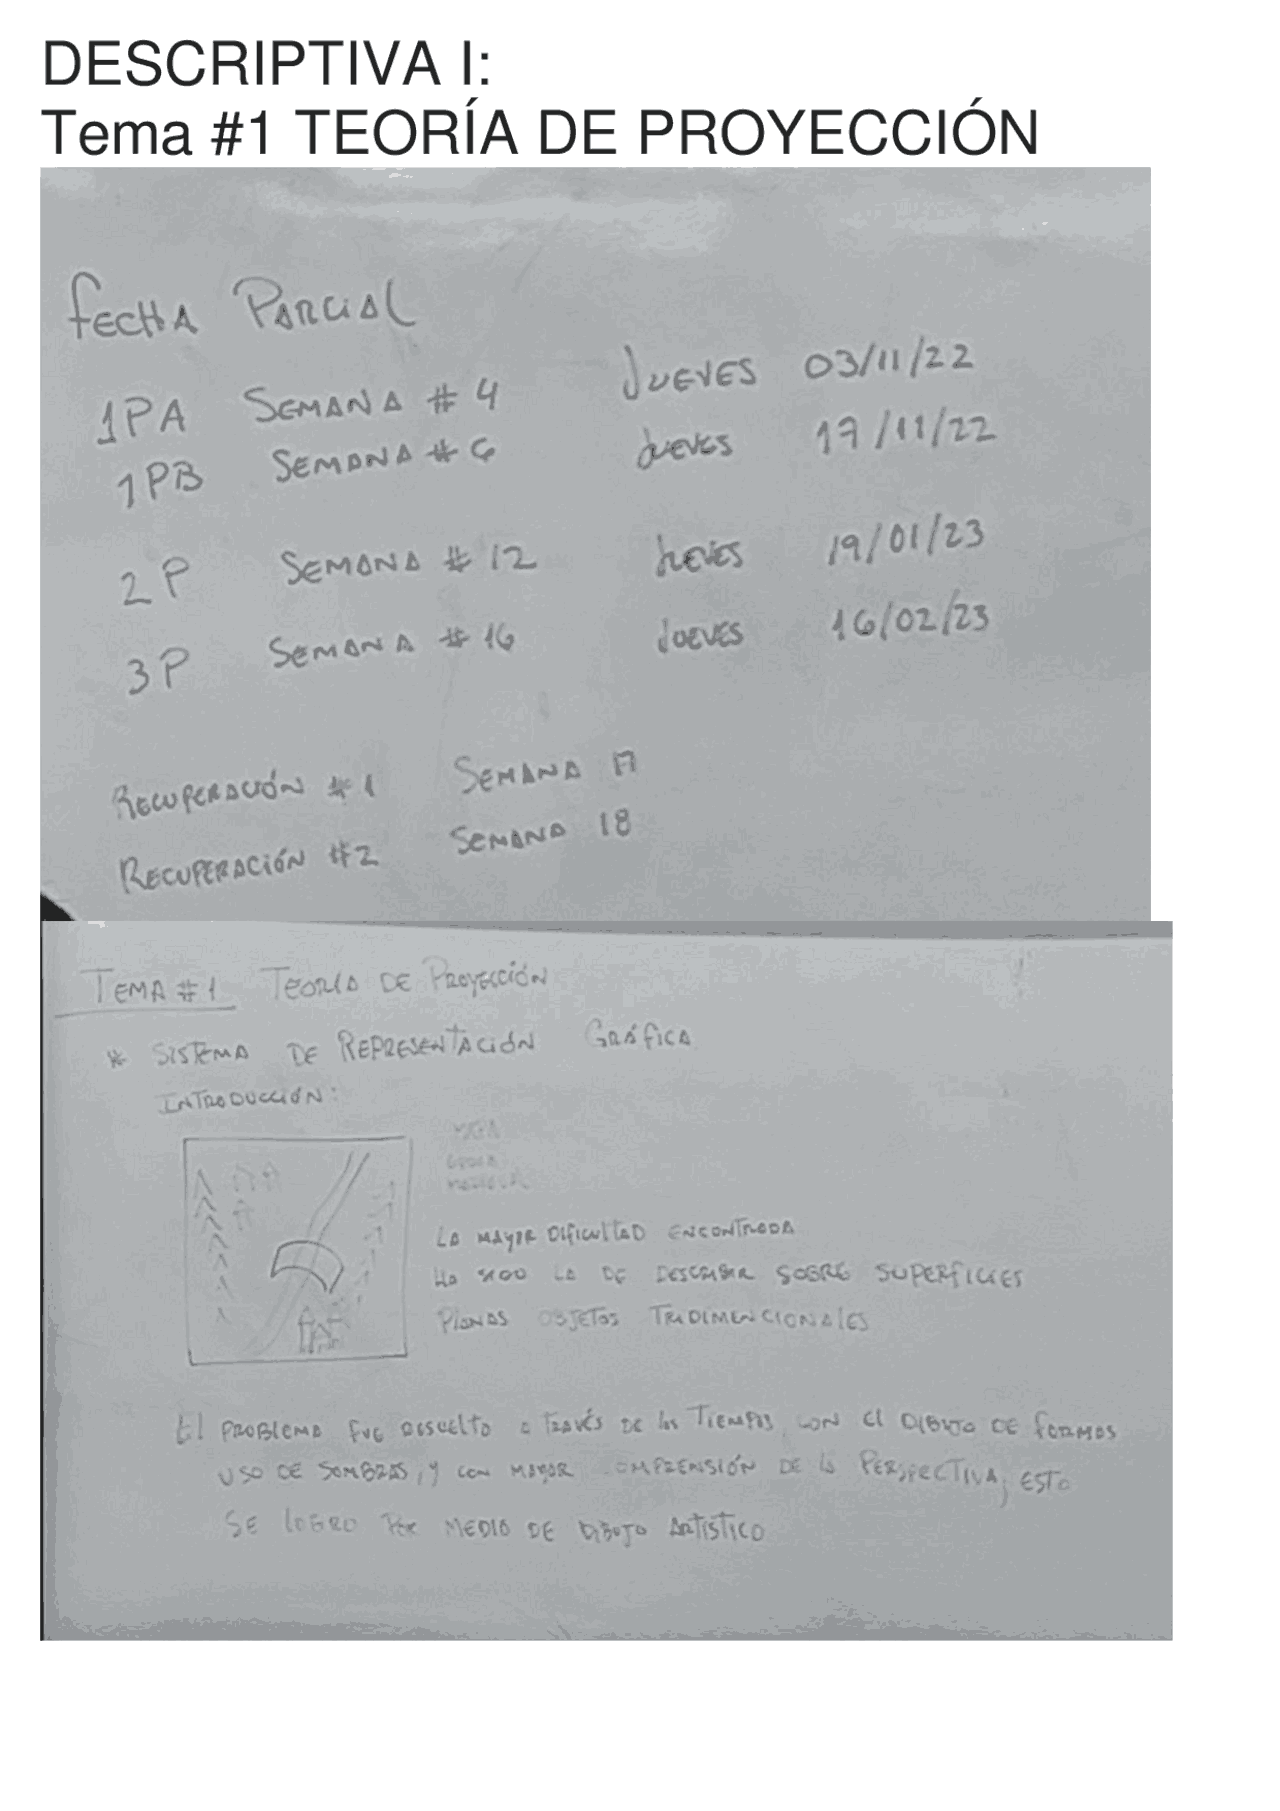 DESCRIPTIVA I:
Tema #1 TEORÍA DE PROYECCIÓN
FECHA PARCIAL
1PA SEMANA # 4 JUEVES 03/11/22
1PB SEMANA # 6 JUEVES 17/11/22
2P SEMANA # 12 JUEVES 19/01/23
3P SEMANA # 16 JUEVES 16/02/23
RECUPERACIÓN #1 SEMANA 17
RECUPERACIÓN #2 SEMANA 18
TEMA #1 TEORIA DE PROYECCIÓN
* SISTEMA DE REPRESENTACIÓN GRÁFICA
INTRODUCCIÓN:
LA MAYOR DIFICULTAD ENCONTRADA
HA SIDO LA DE DESCRIBIR SOBRE SUPERFICIES
PLANAS OBJETOS TRIDIMENCIONALES
El PROBLEMA FUE RESUELTO A TRAVÉS DE los TIEMPOS, CON El DIBUJO DE FORMAS
USO DE SOMBRAS, Y CON MAYOR COMPRENSIÓN DE LA PERSPECTIVA, ESTO
SE LOGRO POR MEDIO DE DIBUJO ARTISTICO